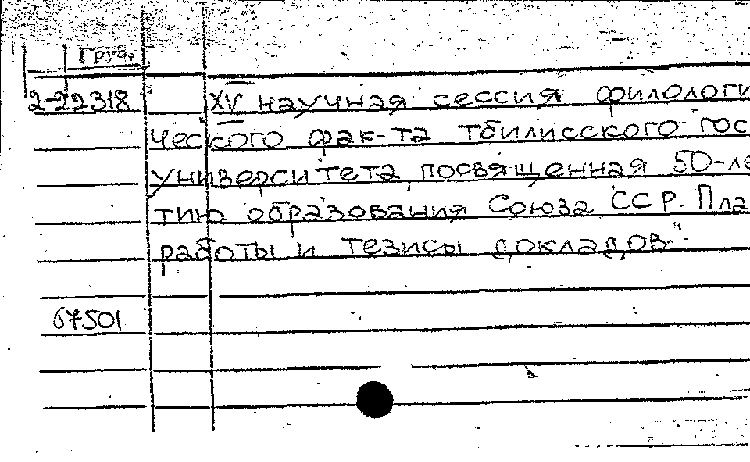 Груз.
2-22318 XV научная сессия филологи
ческого фак-та Тбилисского гос
университета, посвященная 50-ле
тию образования Союза ССР. Пла
работы и тезисы докладов"
67501